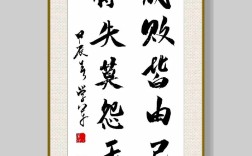 成败皆由己
得失莫怨天
甲辰春